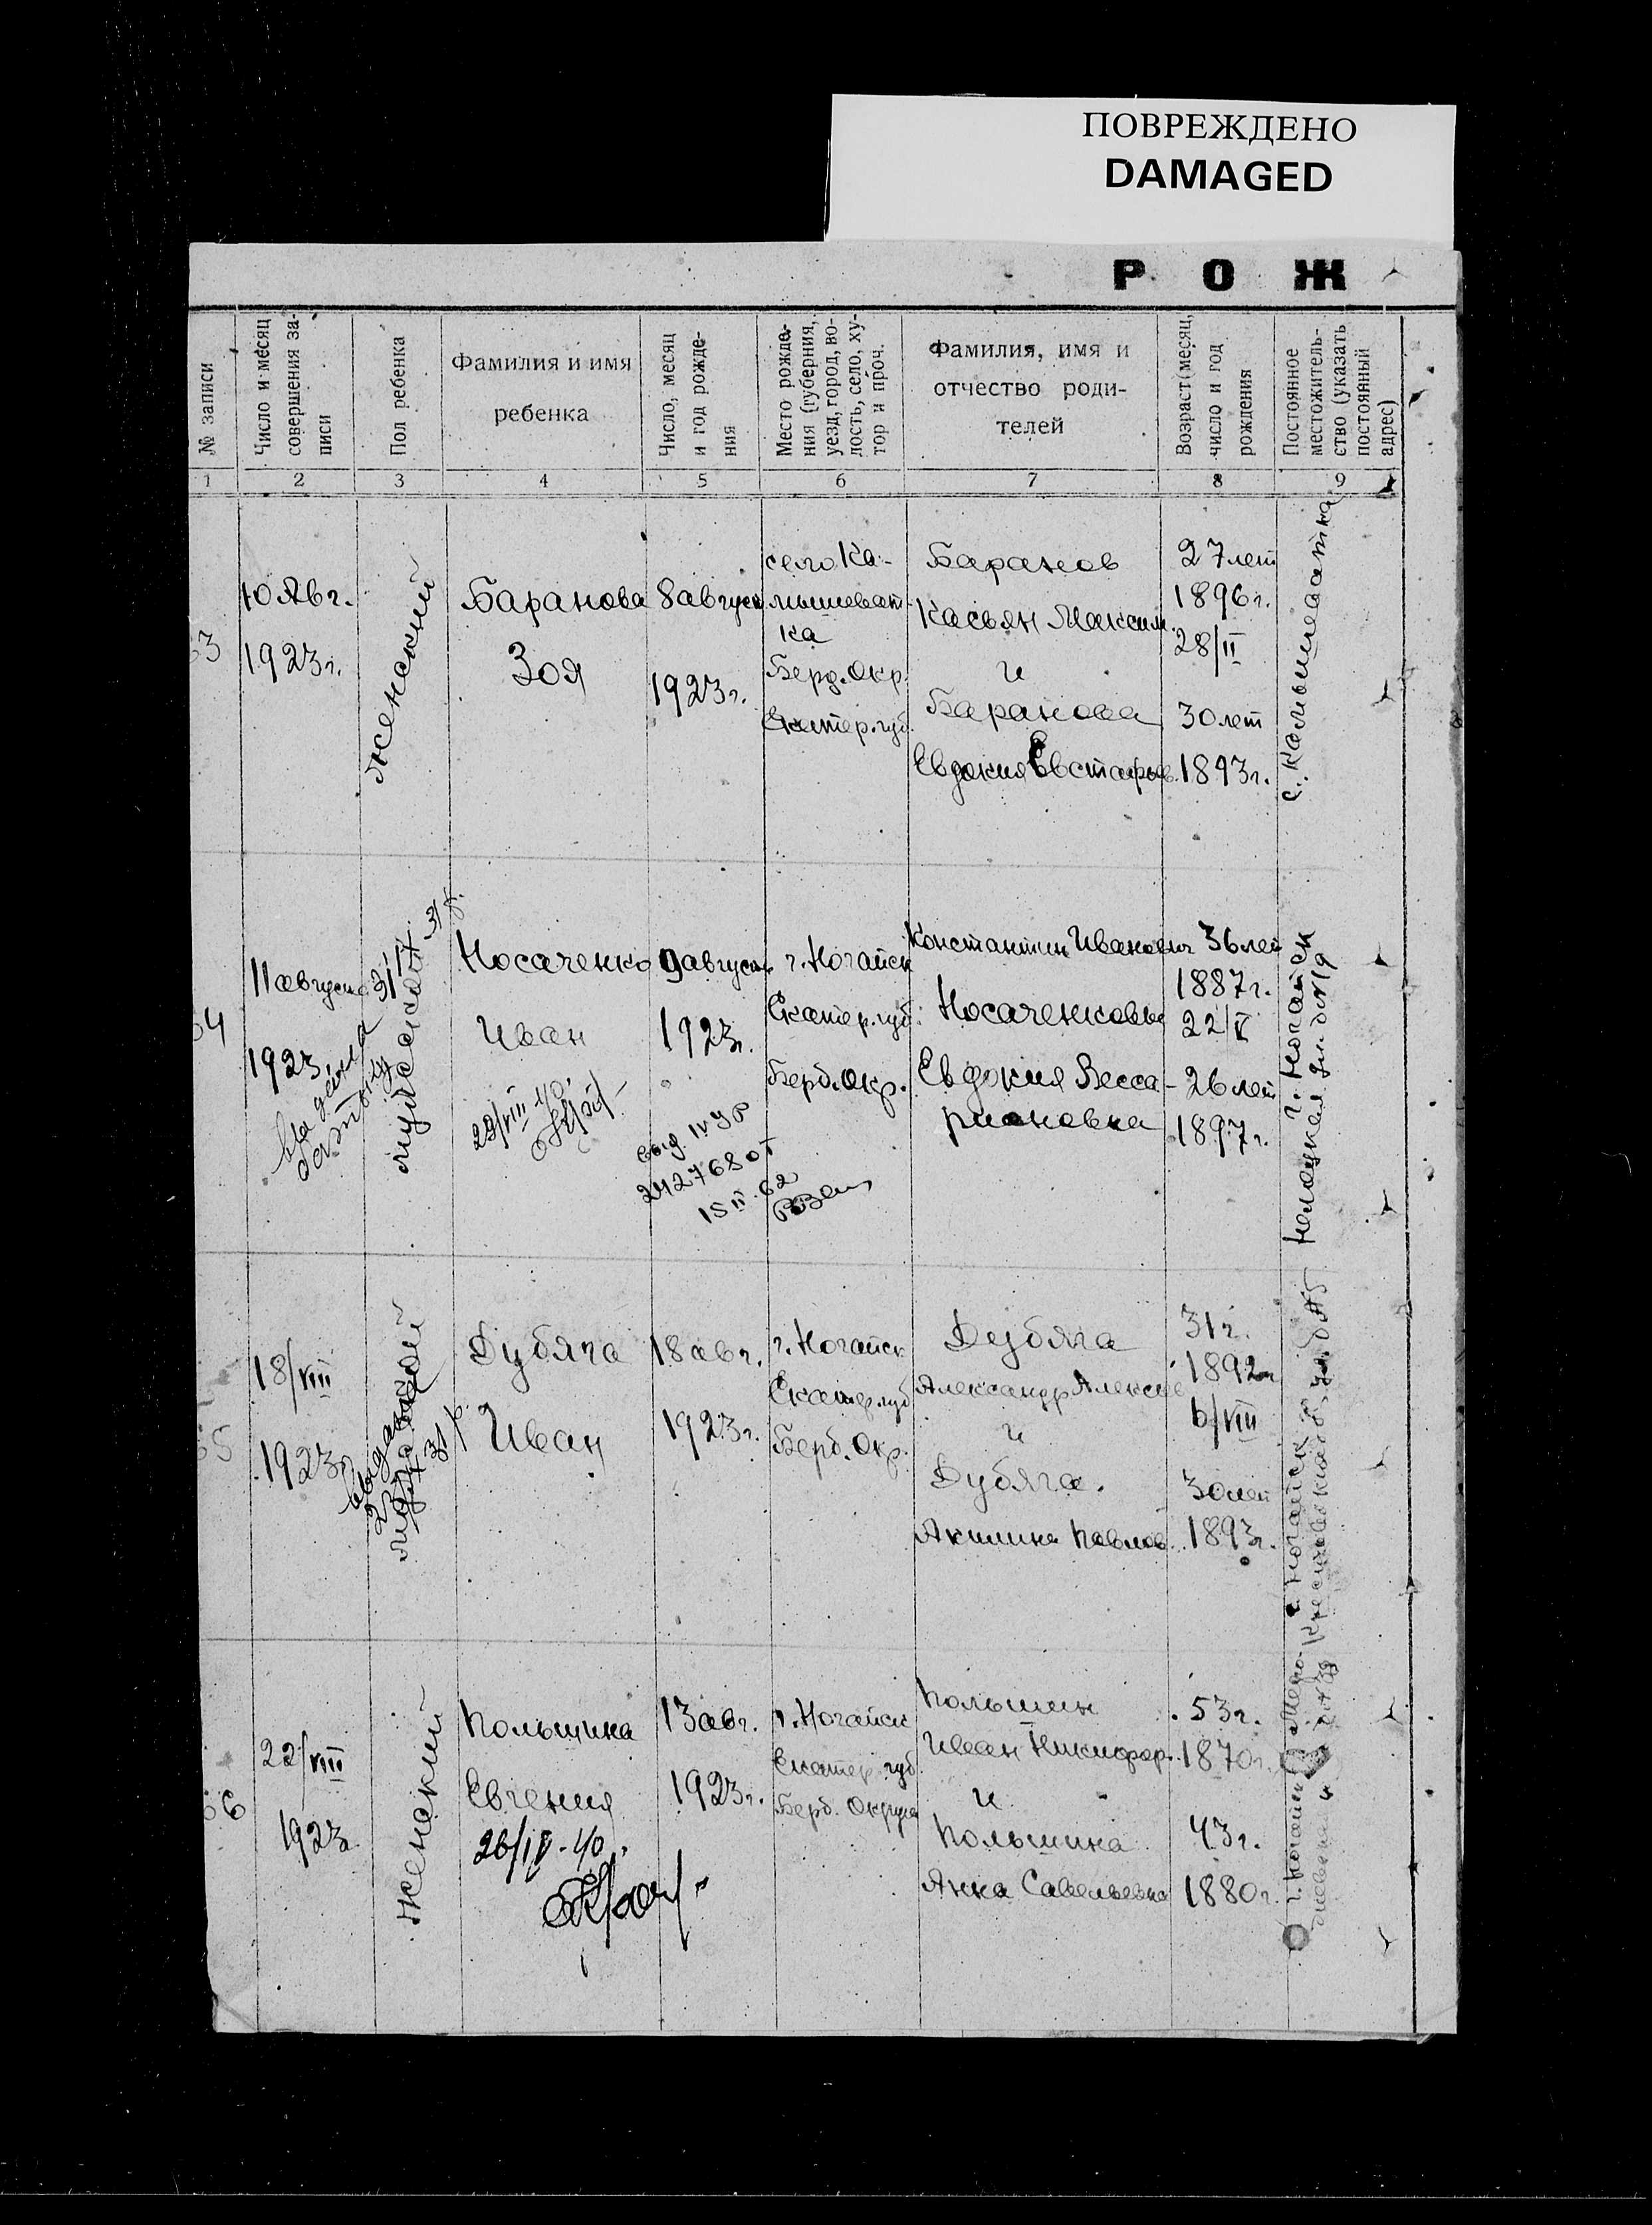 ПОВРЕЖДЕНО
DAMAGED
Р О Ж
№ записи
Число и месяц
совершения за-
писи
Пол ребенка
Фамилия и имя
ребенка
Число, месяц
и год рожде-
ния
Место рожде-
ния (губерния,
уезд, город, во-
лость, село, ху-
тор и проч.
Фамилия, имя и
отчество роди-
телей
Возраст (месяц,
число и год
рождения
Постоянное
местожитель-
ство (указать
постоянный
адрес)
1 2 3 4 5 6 7 8 9
3
10 Авг.
1923г.
женский
Баранова
Зоя
8 август
1923г.
село Ка-
мышеват
ка
Берд. Окр.
Екатер. губ.
Баранов
Касьян Максим.
и
Баранова
Евдокия Евстафьев.
27 лет
1896г.
28/II
30 лет
1893г.
с. Камышеватка
4
11 августа
1923
мужской
Носаченко
Иван
29/VIII-40
9 августа
1923г.
выд. IV УР
2427680т
15 II 62
г. Ногайск
Екатер. губ.
Берд. Окр.
Константин Иванович
Носаченковы
Евдокия Весса-
рионовна
36 лет
1887г.
22/V
26 лет
1897г.
г. Ногайск
5
18/VIII
1923г.
мужской
Дубяга
Иван
18 авг.
1923г.
г. Ногайск
Екатер. губ
Берд. Окр.
Дубяга
Александр Алексе
и
Дубяга.
Акилина Павлов.
31 г.
1892г
6/VIII
30 лет
1893г.
г. Ногайск
6
22/VIII
1923
женский
Польшина
Евгения
26/IV-40.
13 авг.
1923г.
г. Ногайск
Екатер. губ.
Берд. Округа
Польшин
Иван Никифор.
и
Польшина
Анна Савельевна
53г.
1870г.
43г.
1880г.
г. Ногайск